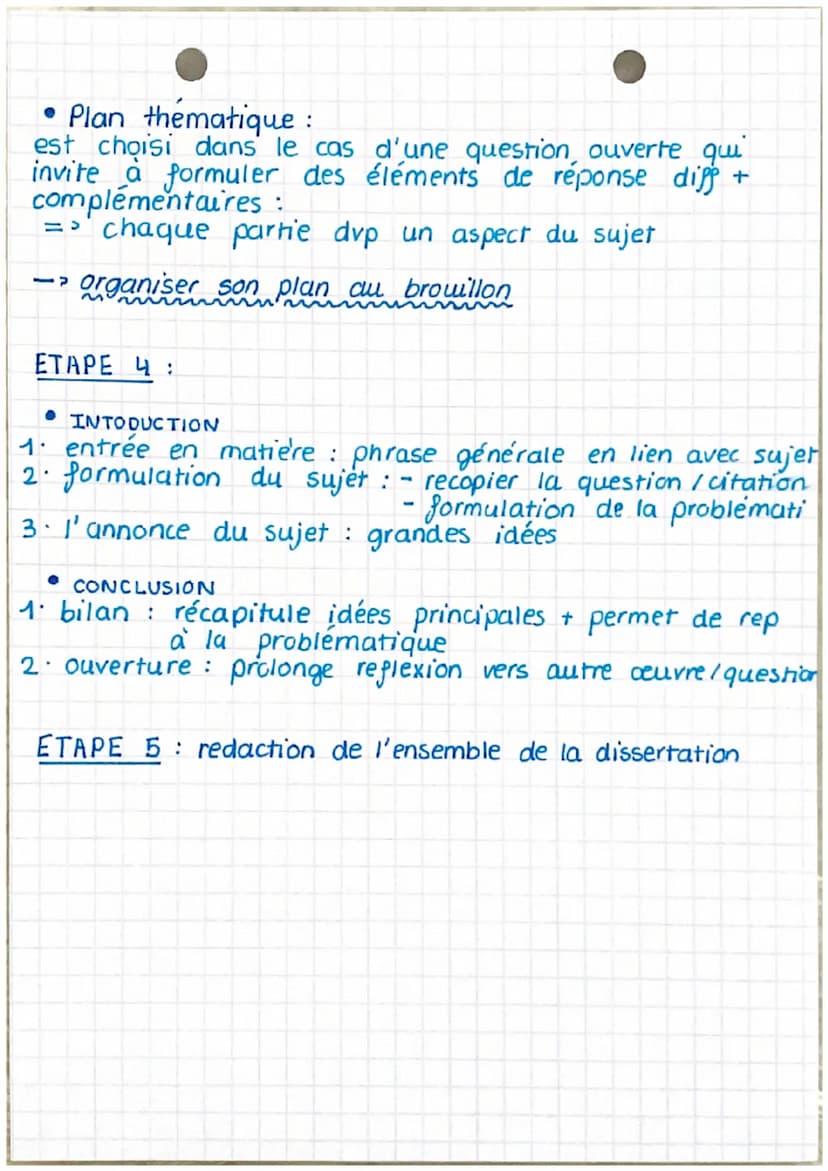 • Plan thématique :
est choisi dans le cas d'une question ouverte qui
invite à formuler des éléments de réponse diff +
complémentaires :
=> chaque partie dvp un aspect du sujet
-> organiser son plan au brouillon
ETAPE 4 :
• INTODUCTION
1. entrée en matière : phrase générale en lien avec sujet
2. formulation du sujet : - recopier la question / citation
- formulation de la problémati
3. l'annonce du sujet : grandes idées
• CONCLUSION
1. bilan : récapitule idées principales + permet de rep
à la problématique
2. ouverture : prolonge reflexion vers autre œuvre / question
ETAPE 5 : redaction de l'ensemble de la dissertation